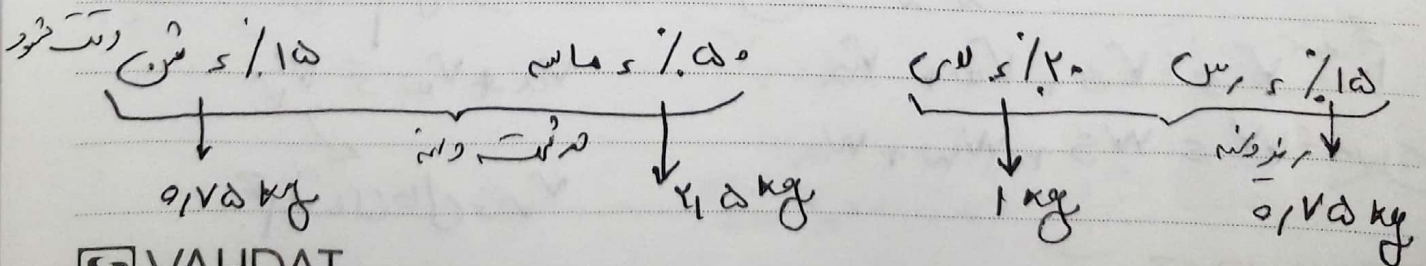 ۱۵٪ ء رس ۲۰٪ ء لای ۵۰٪ ء ماسه ۱۵٪ ء شن دقت شود
ریزدانه درشت دانه
۰,۷۵ kg ۱ kg ۲,۵ kg ۰,۷۵ kg
VALIDAT